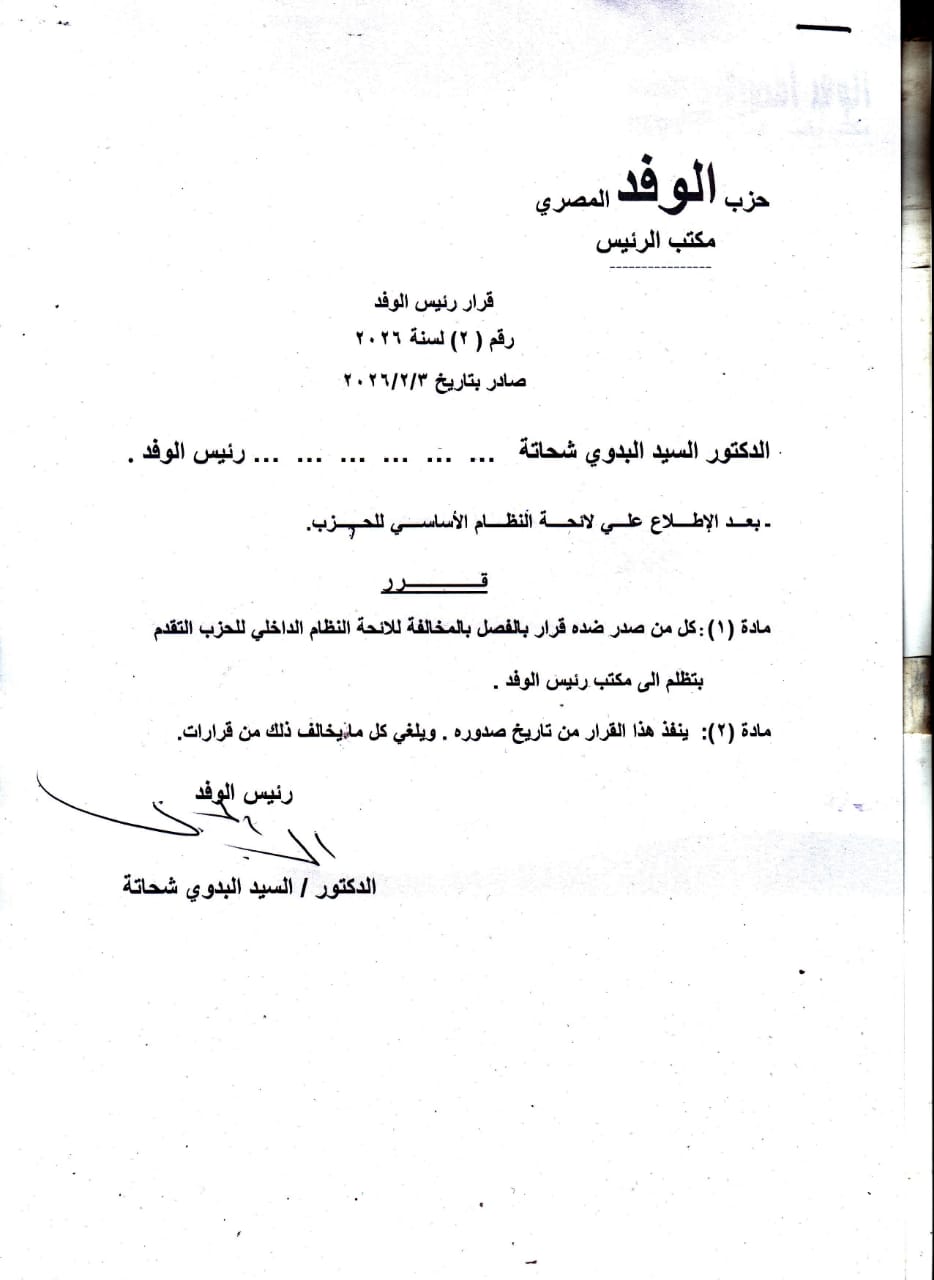 حزب الوفد المصري
مكتب الرئيس
----------------
قرار رئيس الوفد
رقم ( ٢) لسنة ٢٠٢٦
صادر بتاريخ ٢٠٢٦/٢/٣
الدكتور السيد البدوي شحاتة ... ... ... ... ... ... رئيس الوفد .
ـ بعـد الإطـلاع علـي لائحـة النظـام الأساسـي للحـزب.
قـــــرر
مادة (١):كل من صدر ضده قرار بالفصل بالمخالفة للائحة النظام الداخلي للحزب التقدم
بتظلم الى مكتب رئيس الوفد .
مادة (٢): ينفذ هذا القرار من تاريخ صدوره . ويلغي كل ما يخالف ذلك من قرارات.
رئيس الوفد
الدكتور / السيد البدوي شحاتة